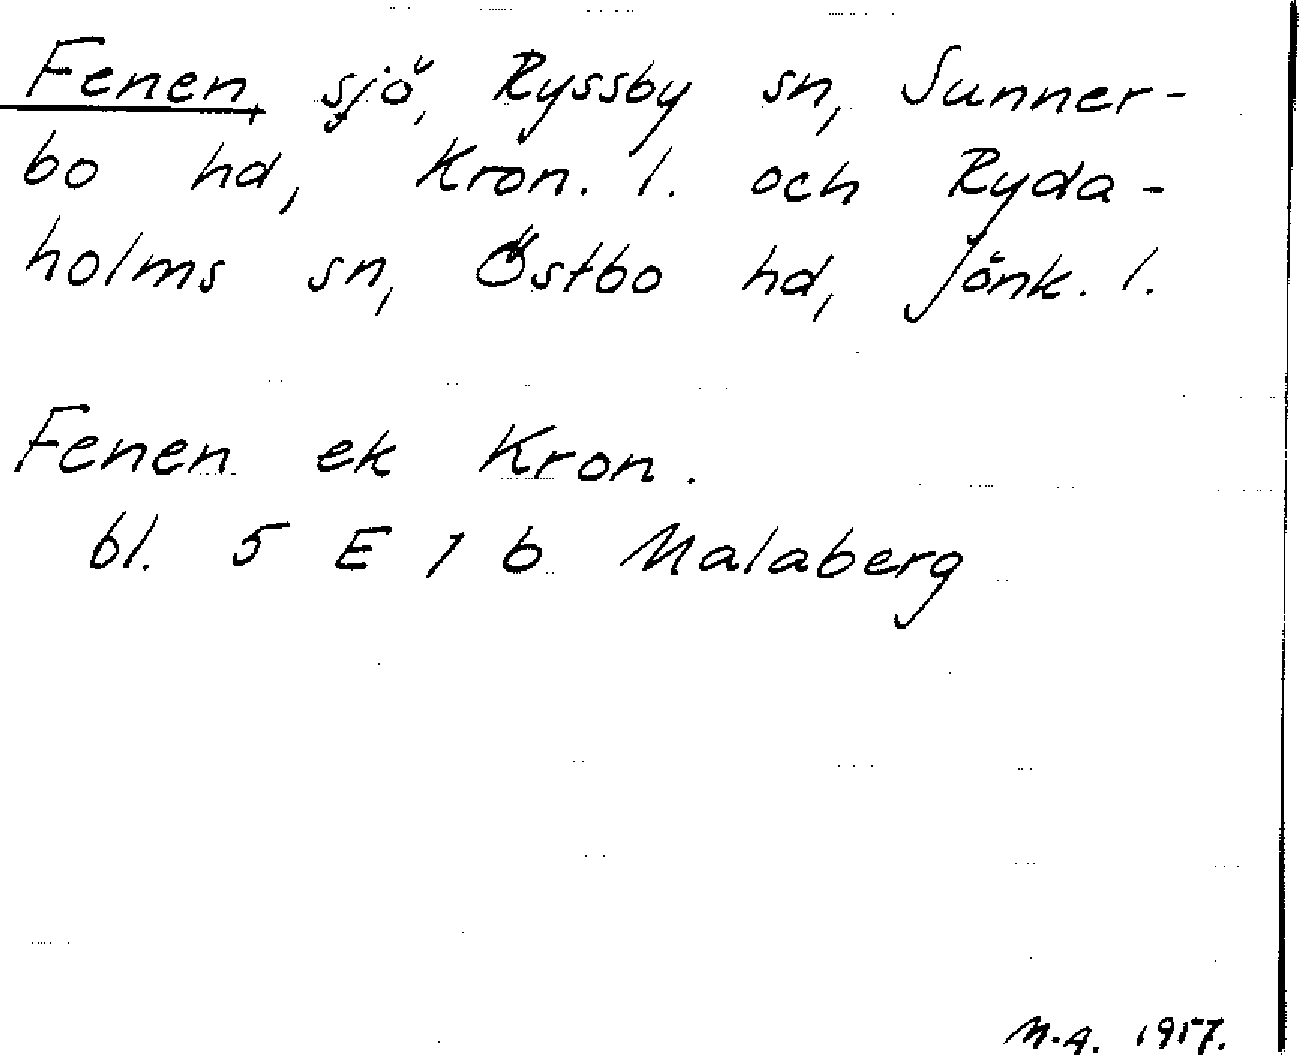 Fenen, sjö, Ryssby sn, Sunner-
bo hd, Kron. l. och Ryda-
holms sn, Östbo hd, Jönk. l.
Fenen ek Kron.
bl. 5 E 1 b Malaberg
1957.